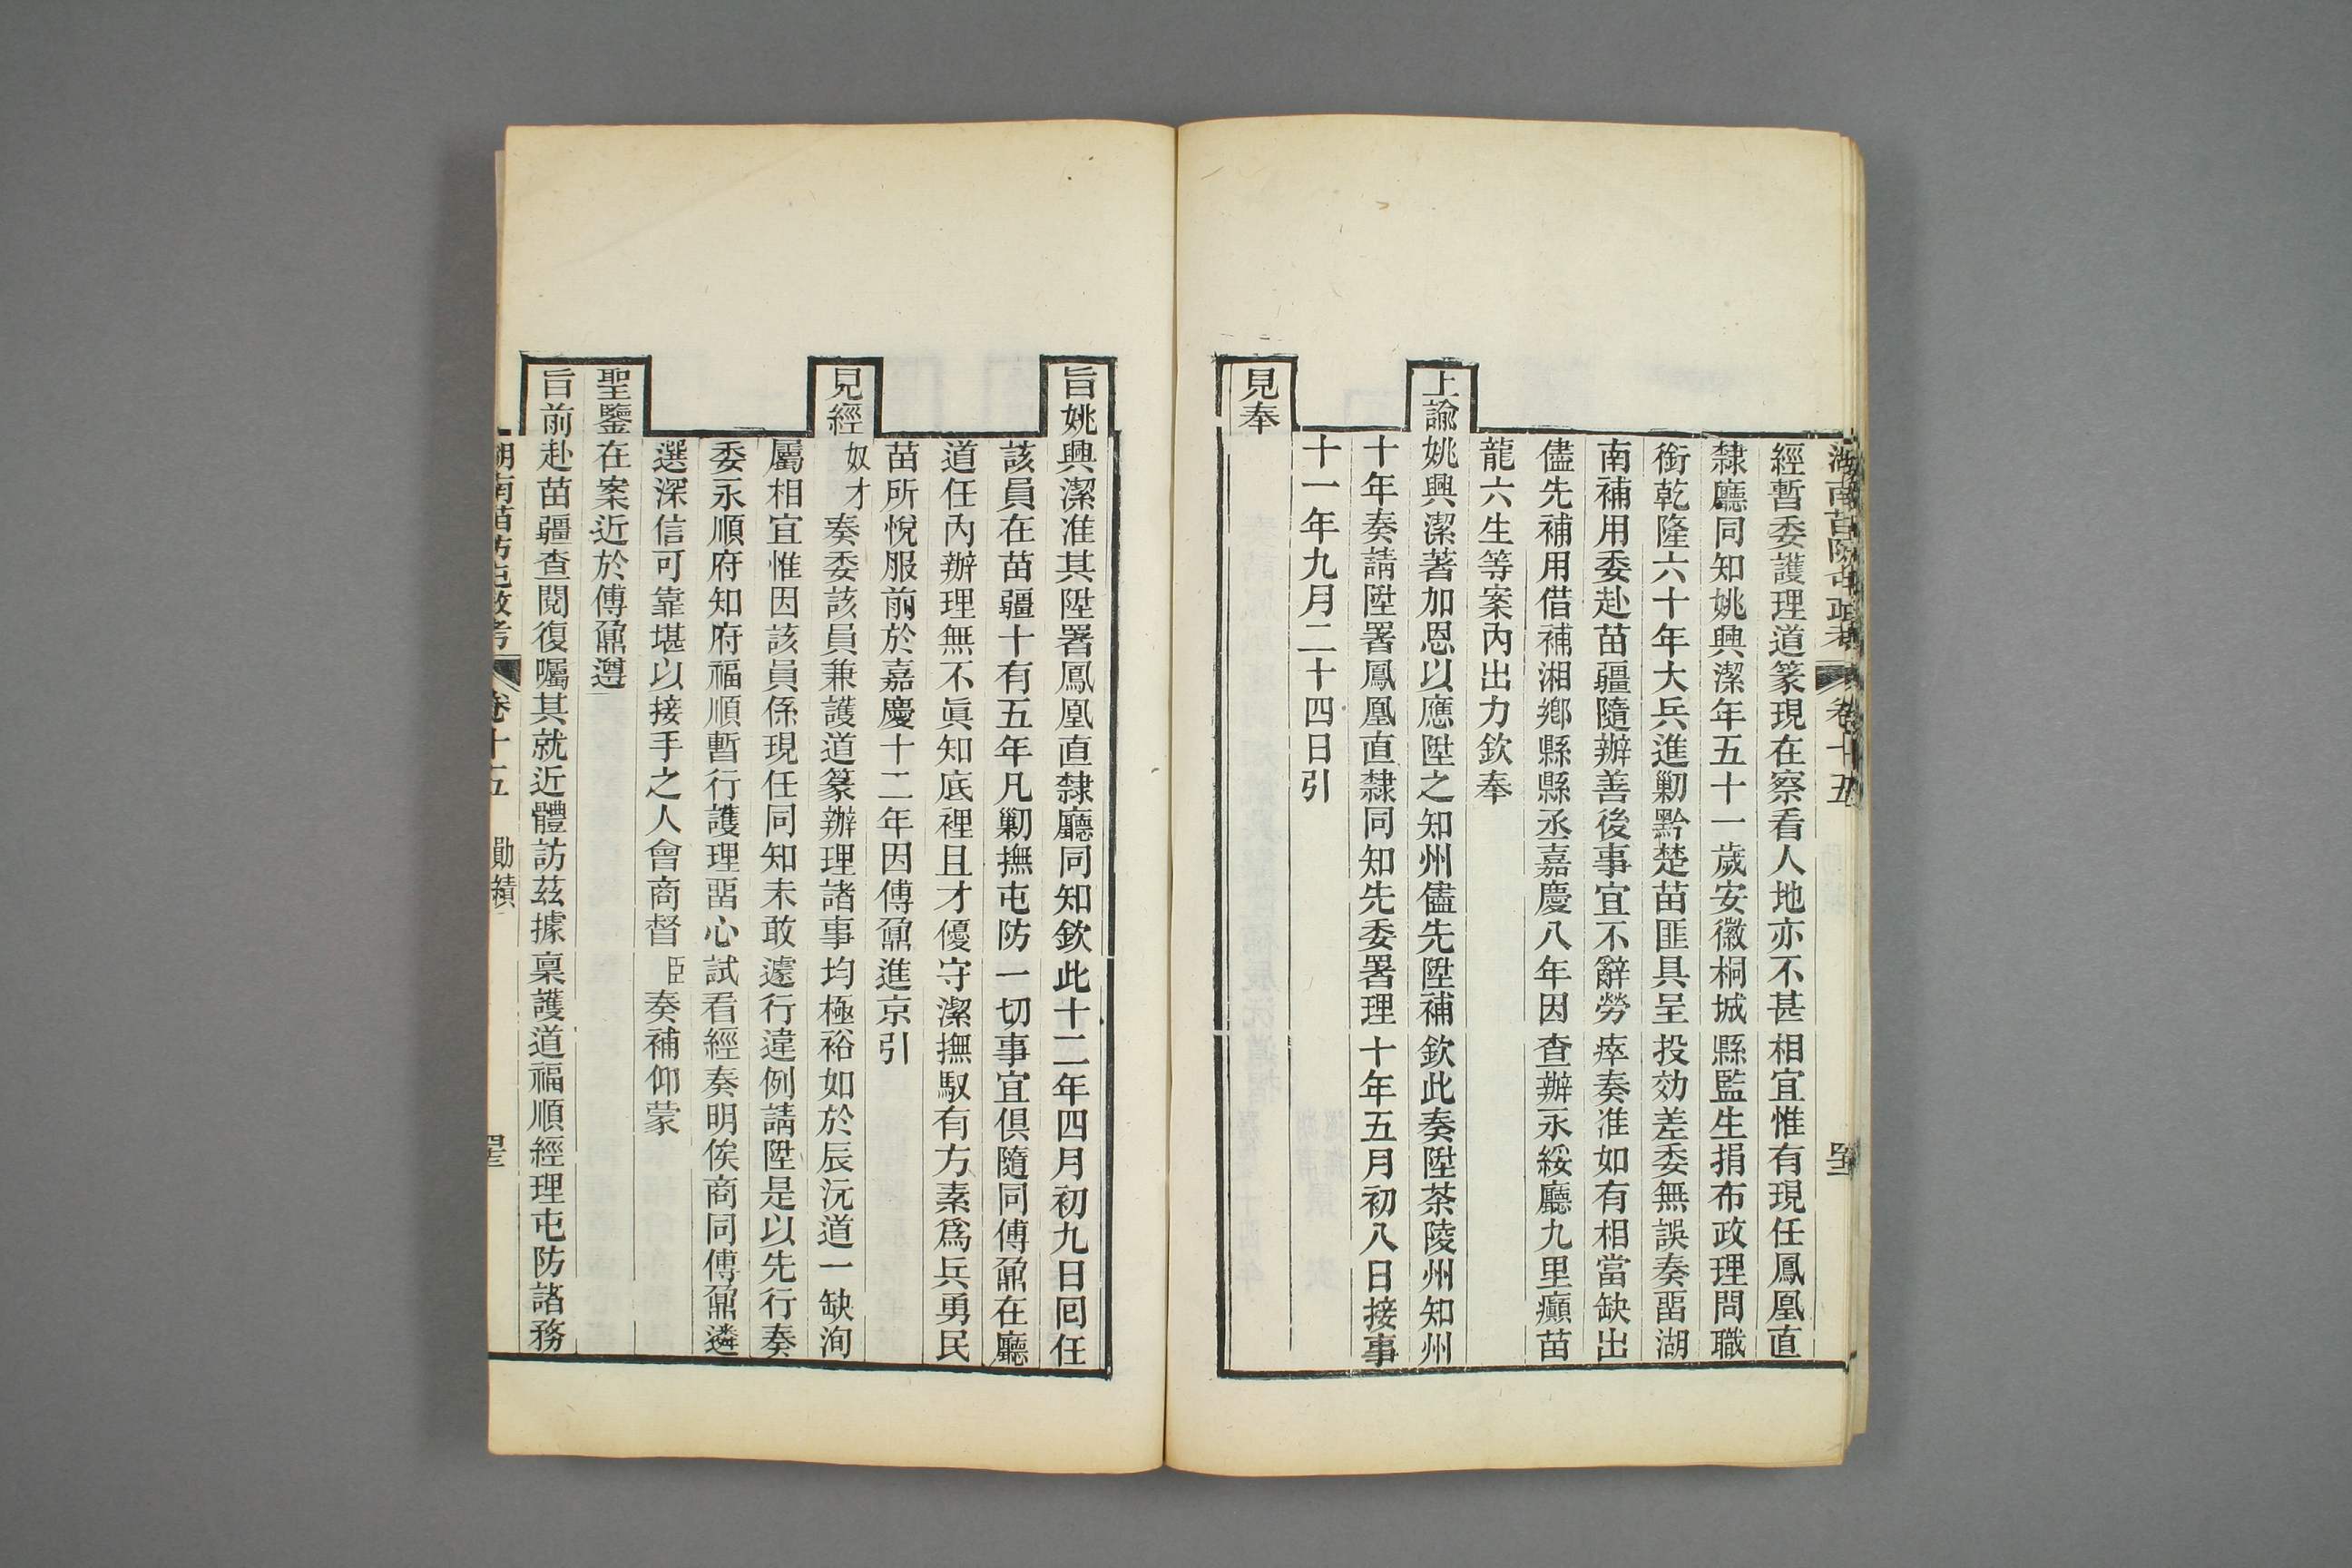 湖南苗防屯政考 卷十五
經暫委護理道篆現在察看人地亦不甚相宜惟有現任鳳凰直
隸廳同知姚興潔年五十一歲安徽桐城縣監生捐布政理問職
銜乾隆六十年大兵進剿黔楚苗匪具呈投効差委無誤奏畱湖
南補用委赴苗疆隨辦善後事宜不辭勞瘁奏准如有相當缺出
儘先補用借補湘鄉縣縣丞嘉慶八年因查辦永綏廳九里癲苗
龍六生等案內出力欽奉
上諭姚興潔著加恩以應陞之知州儘先陞補欽此奏陞茶陵州知州
十年奏請陞署鳳凰直隸同知先委署理十年五月初八日接事
十一年九月二十四日引
見奉
旨姚興潔准其陞署鳳凰直隸廳同知欽此十二年四月初九日囘任
該員在苗疆十有五年凡剿撫屯防一切事宜俱隨同傅鼐在廳
道任內辦理無不眞知底裡且才優守潔撫馭有方素爲兵勇民
苗所悅服前於嘉慶十二年因傅鼐進京引
見經奴才奏委該員兼護道篆辦理諸事均極裕如於辰沅道一缺洵
屬相宜惟因該員係現任同知未敢遽行違例請陞是以先行奏
委永順府知府福順暫行護理畱心試看經奏明俟商同傅鼐遴
選深信可靠堪以接手之人會商督臣奏補仰蒙
聖鑒在案近於傅鼐遵
旨前赴苗疆查閱復囑其就近體訪茲據稟護道福順經理屯防諸務
湖南苗防屯政考 卷十五 勛績